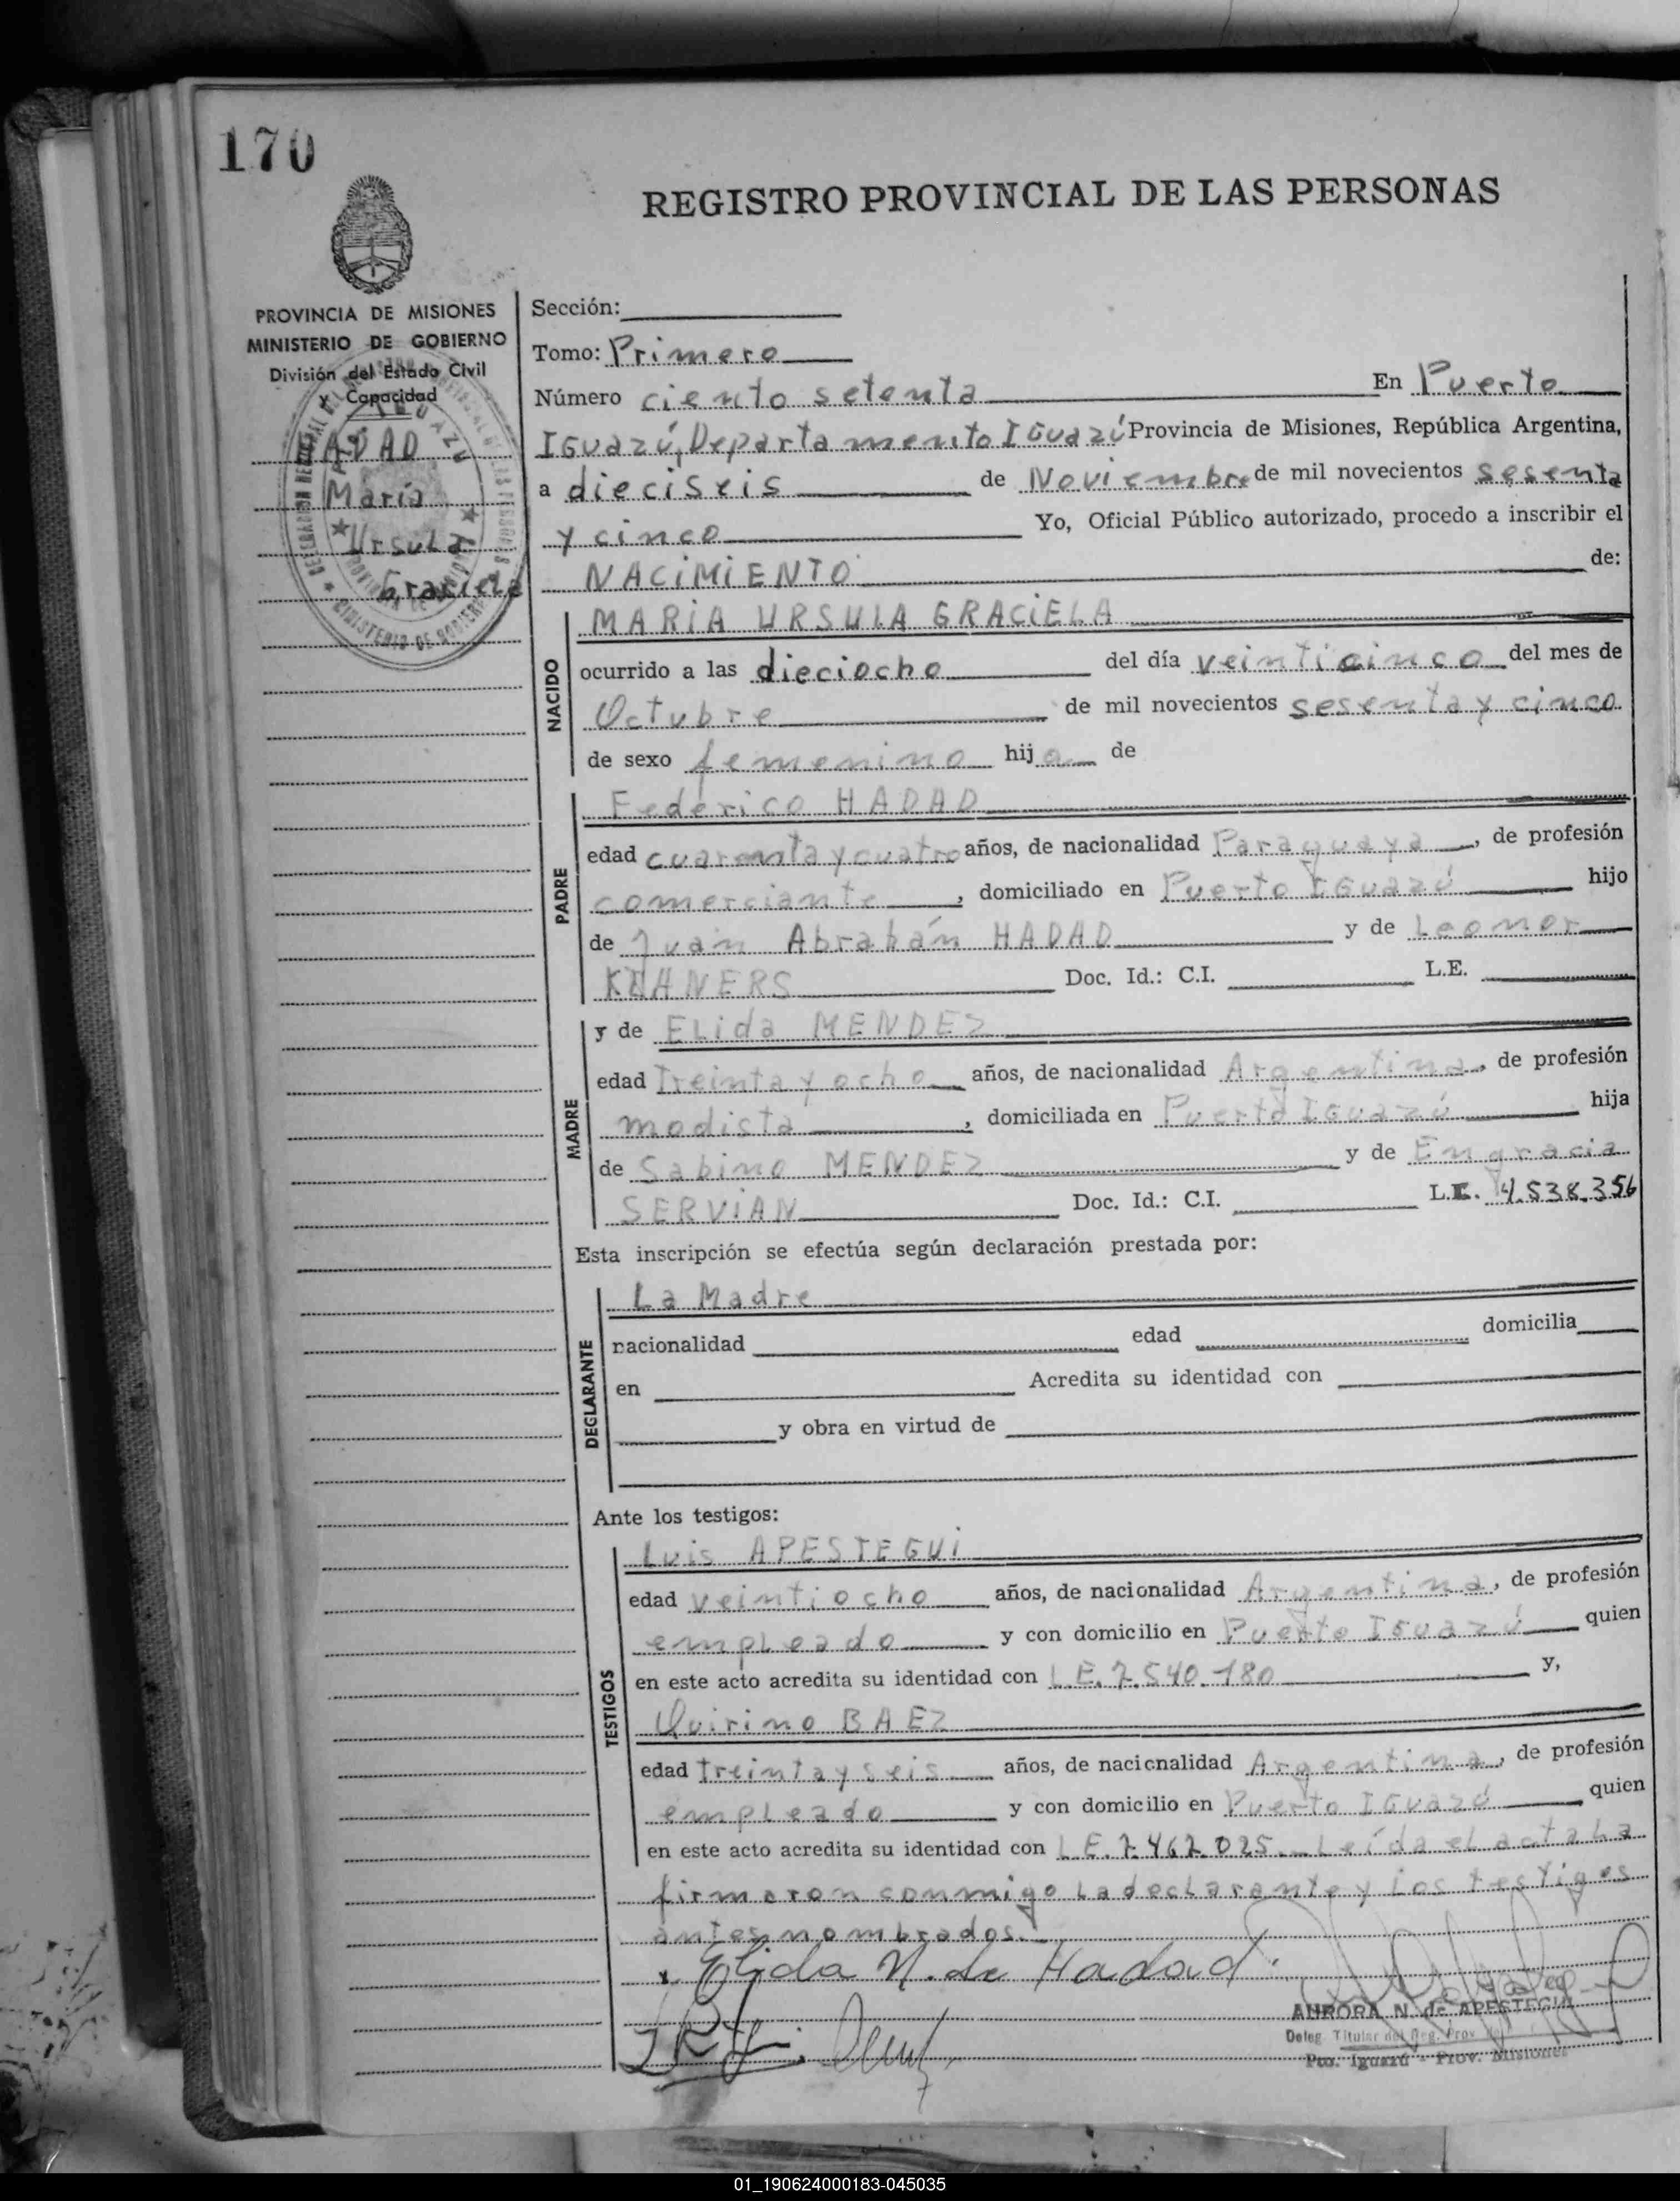 170
REGISTRO PROVINCIAL DE LAS PERSONAS
PROVINCIA DE MISIONES
MINISTERIO DE GOBIERNO
División del Estado Civil
y Capacidad
HADAD
María
Ursula
Graciela
Sección:
Tomo: Primero
Número ciento setenta En Puerto
Iguazú, Departamento Iguazú Provincia de Misiones, República Argentina,
a dieciseis de Noviembre de mil novecientos sesenta
y cinco Yo, Oficial Público autorizado, procedo a inscribir el
NACIMIENTO de:
NACIDO
MARIA URSULA GRACIELA
ocurrido a las dieciocho del día veinticinco del mes de
Octubre de mil novecientos sesenta y cinco
de sexo femenino hija de
PADRE
Federico HADAD
edad cuarenta y cuatro años, de nacionalidad Paraguaya, de profesión
comerciante, domiciliado en Puerto Iguazú hijo
de Juan Abrahán HADAD y de Leonor
Doc. Id.: C.I. L.E.
MADRE
y de Elida MENDEZ
edad Treinta y ocho años, de nacionalidad Argentina, de profesión
modista, domiciliada en Puerto Iguazú hija
de Sabino MENDEZ y de Engracia
SERVIAN Doc. Id.: C.I. 4.538.356
Esta inscripción se efectúa según declaración prestada por:
DECLARANTE
La Madre
nacionalidad edad domicilia
en Acredita su identidad con
y obra en virtud de
Ante los testigos:
TESTIGOS
Luis APESTEGUI
edad veintiocho años, de nacionalidad Argentina, de profesión
empleado y con domicilio en Puerto Iguazú quien
en este acto acredita su identidad con L.E. 7.540.180 y,
Quirino BAEZ
edad treinta y seis años, de nacionalidad Argentina, de profesión
empleado y con domicilio en Puerto Iguazú quien
en este acto acredita su identidad con L.E. 7.462.025. Leída el acta la
firmaron conmigo la declarante y los testigos
antes nombrados.
Elida M. de Hadad
AURORA N. de APESTEGUI
Deleg. Titular del Reg. Prov.
Pto. Iguazú - Prov. Misiones
01_190624000183-045035